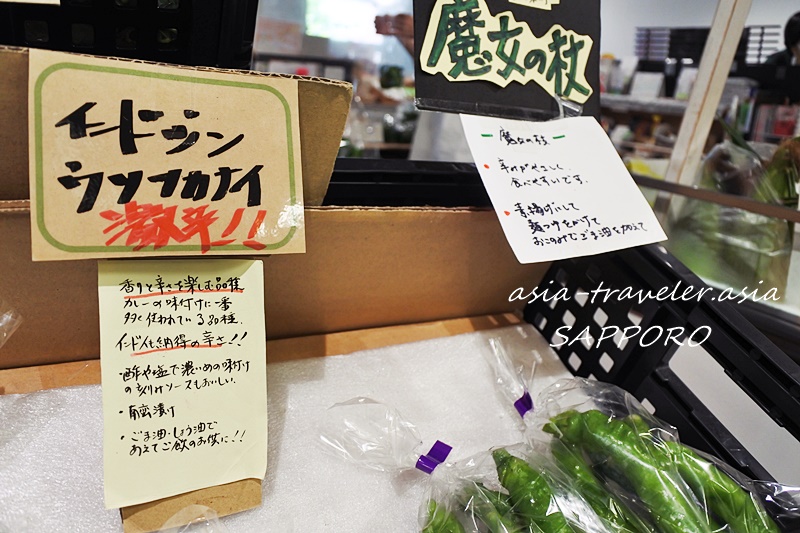 インドジン
ウソツカナイ
激辛!!
香りと辛さを楽しむ品種
カレーの味付けに一番
多く使われている品種.
インド人も納得の辛さ!!
・酢や塩で濃いめの味付け
の刻みソースもおいしい.
・南蛮漬け
・ごま油・しょう油で
あえてご飯のお供に!!
魔女の杖
魔女の杖
辛みがやさしく
食べやすいです。
素揚げにして
麺つゆをかけて
おこのみでごま油を加えて
asia-traveler.asia
SAPPORO